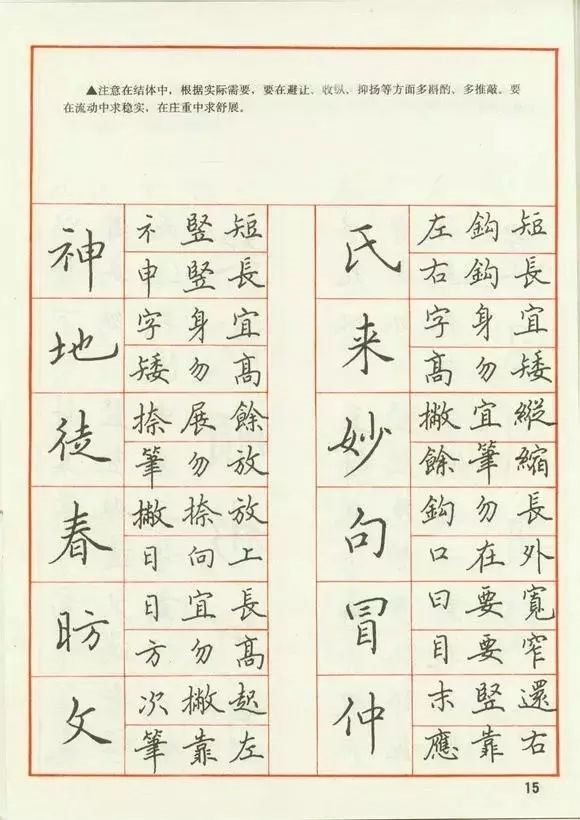 ▲注意在结体中，根据实际需要，要在避让、收纵、抑扬等方面多斟酌、多推敲。要
在流动中求稳实，在庄重中求舒展。
神
礻竖短
申竖長
地
字身宜
矮勿高
徒
捺展餘
筆勿放
春
撇捺放
日向上
昉
日宜長
方勿高
文
次撇起
筆靠左
氏
左鈎短
右鈎長
来
字身宜
高勿矮
妙
撇宜縱
餘筆縮
句
鈎勿長
口在外
冒
曰要寬
目要窄
仲
末竪還
應靠右
15